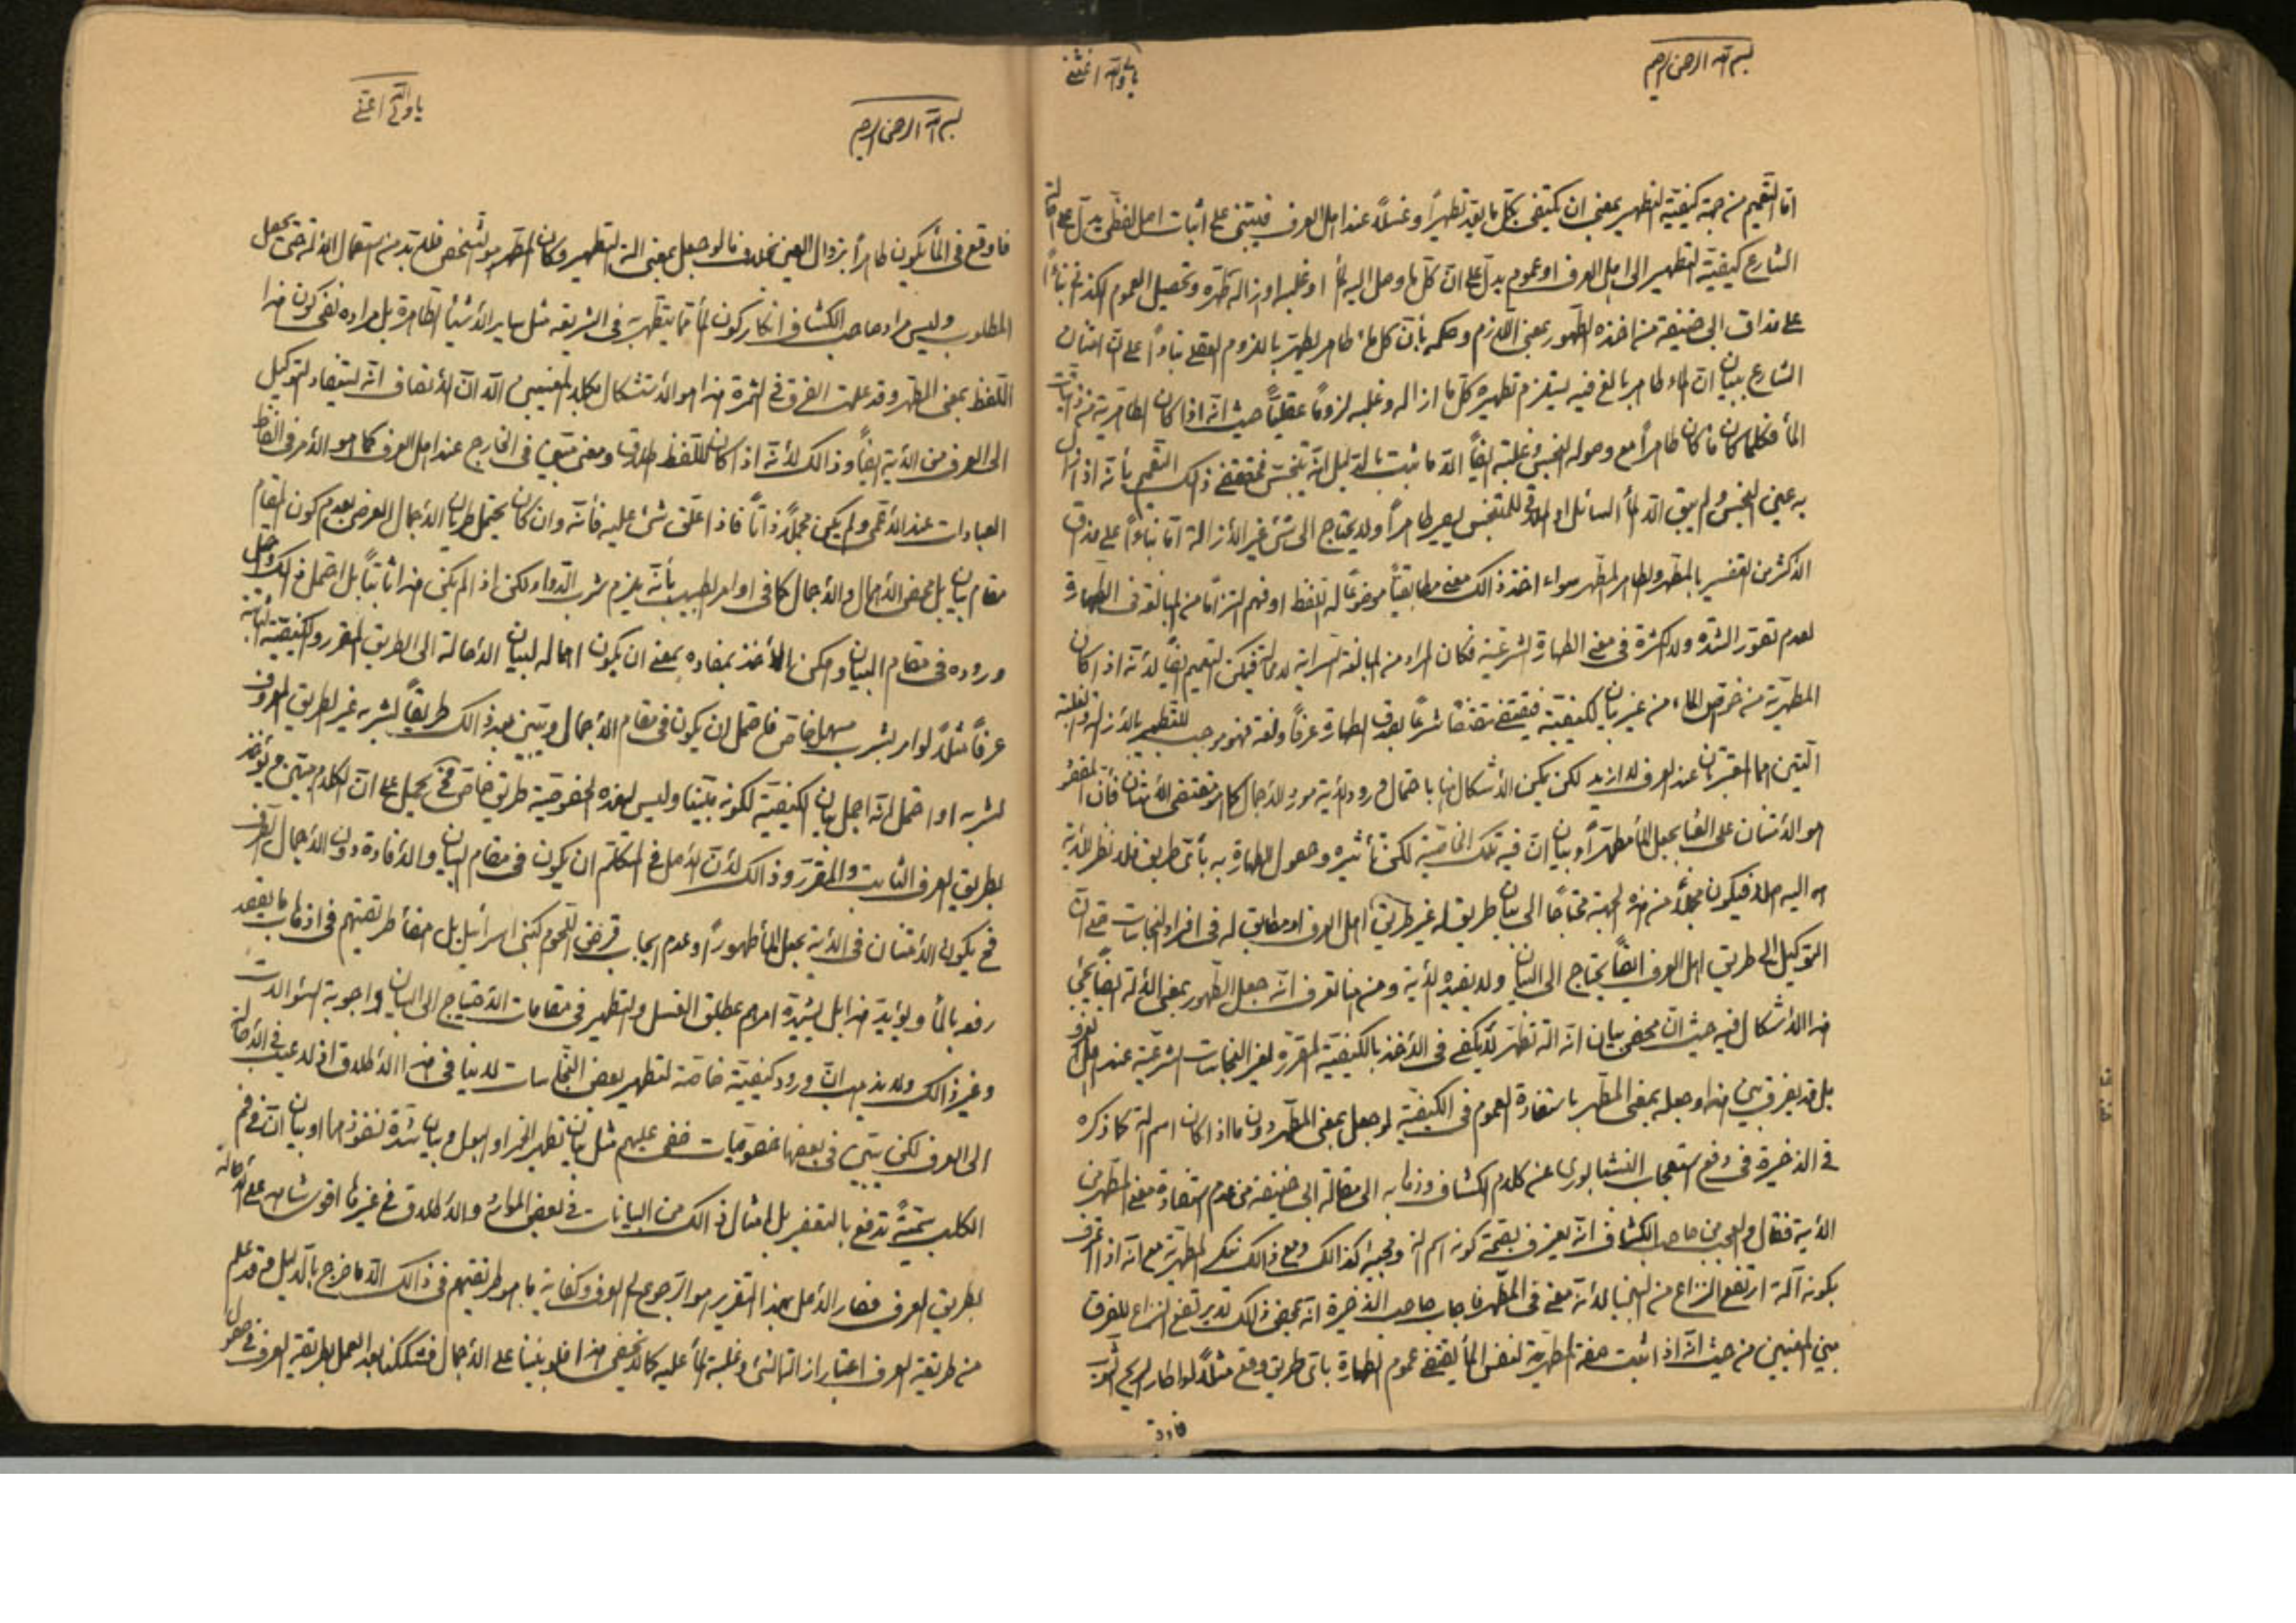 بسم الله الرحمن الرحيم
يا ولي الله اغثني
اما التعميم من جهة كيفية التطهير بمعنى ان يكتفى بكل ما يعد تطهيراً وغسلاً عند اهل العرف فيبتنى على اثبات اصل لفظي يدل على احالة
الشارع كيفية التطهير الى اهل العرف او عموم يدل على ان كل ما وصل اليه الماء او غلبه او ازاله طهره وتحصيل العموم
على مذاق ابى حنيفة من اخذه الطهور بمعنى اللازم وحكمه بأن كل ماء طاهر يطهر باللزوم العقلى بناءً على ان امتنان
الشارع ببيان ان الماء طاهر بالغ فيه يستلزم تطهيره كل ما ازاله وغلبه لزوماً عقلياً حيث انه اذا كان الطاهرية من ذاتيات
الماء فكلما كان ماء كان طاهراً مع وصوله النجس وغلبته ايضاً الا ما ثبت بالدليل انه يتنجس فمقتضى ذالك التعميم بأنه اذا زال
به عين النجس ولم يبق الا الماء السائل او الملاقى للمتنجس يصير طاهراً ولا يحتاج الى شئ غير الأزالة اما بناءاً على مذاق
الأكثر من تفسيره بالمطهر والطاهر المطهر سواء اخذ ذالك معنى مطابقياً موضوعاً له اللفظ او فهم التزاماً من المبالغة فى الطهارة
لعدم تصور الشدة والكثرة فى معنى الطهارة الشرعية فكان المراد من المبالغة السراية لا محالة فيمكن التعميم ايضاً لأنه اذا كان
المطهرية من خواص الماء من غير بيان لكيفية فيقتضى مقتضاً شرعاً بصدق الطهارة عرفاً ولغة فهو موجب للتطهير بالأزالة والغلبة
الذين هما المعتبران عند العرف لا ازيد لكن يمكن الأشكال هنا باحتمال ورود الأية مورد الأجمال كما هو مقتضى الأمتنان فأن المقصود
هو الأمتنان على العباد بجعل الماء مطهراً وبيان ان فيه تلك الخاصية لكن تأثيره وحصول الطهارة به بأى طريق فلا نظر للأية
اليه اصلا فيكون مجملاً من هذه الجهة محتاجاً الى بيان طريق له غير طريق اهل العرف او مطابق له فى افراد النجاسات حتى ان
التوكيل الى طريق اهل العرف ايضاً يحتاج الى البيان ولا يفيده الأية ومن هنا تعرف انه جعل الطهور بمعنى الألة ايضاً يجئ
هذا الأشكال فيه حيث ان محض بيان انه الة تطهر لا يكفى فى الأخذ بالكيفية المقررة لغير النجاسات الشرعية عند اهل العرف
بل قد يفرق بين هذا وجعله بمعنى المطهر باستفادة العموم فى الكيفية لو جعل بمعنى المطهر دون ما اذا كان اسم الة كما ذكره
فى الذخيرة فى دفع استعجاب النيشابورى عن كلام الكشاف وذهابه الى مقالة ابى حنيفة من عدم استفادة معنى المطهر من
الأية فقال والعجب من صاحب الكشاف انه يعترف بصحة كونه اسم الة ومجيئه كذالك ومع ذالك ينكر المطهرية مع انه اذا اعترف
بكونه آلة ارتفع النزاع من البين لأنه معنى فى المطهر فاجاب صاحب الذخيرة انه بمحض ذلك لا يرتفع النزاع للفرق
بين المعنيين من حيث انه اذا اثبت صفة المطهرية لنفس الماء يقتضى عموم الطهارة باى طريق وقع مثلاً لو اطار الريح الثوب
فاوقع
بسم الله الرحمن الرحيم
يا ولي الله اغثني
فاوقع فى الماء يكون طاهراً بزوال العين بخلاف ما لو جعل بمعنى الة التطهير وكان المطهر هو الشخص فلا بد من استعمال الألة حتى يحصل
المطلوب وليس مراد صاحب الكشاف انكار كون الماء مما يتطهر به فى الشريعة مثل ساير الأشياء الطاهرة بل مراده نفى كون هذا
اللفظ بمعنى المطهر وقد علمت الفرق فى الثمرة هذا هو الأشكال بكلا المعنيين الا ان الأنصاف انه يستفاد التوكيل
الى العرف من الأية ايضاً وذالك لأنه اذا كان للفظ اطلاق ومعنى متبين فى الخارج عند اهل العرف كما هو الأمر فى الفاظ
العبادات عند الأعمى ولم يكن مجملاً ذاتاً فاذا علق شئ عليه فأنه وان كان يحتمل طريان الأجمال العرضى بعدم كون المقام
مقام بيان بل محض الأهمال والأجمال كما فى اوامر الطبيب بأنه يلزم شرب الدواء ولكن اذا لم يكن هذا ثابتاً بل احتمل ذالك واحتمل
وروده فى مقام البيان وامكن الأخذ بمفاده بمعنى ان يكون اجماله لبيان الأحالة الى الطريق المقرر والكيفية الثابتة
عرفاً مثلاً لو امر بشرب مسهل خاص فاحتمل ان يكون فى مقام الأجمال ويبين بعد ذالك طريقاً لشربه غير الطريق المعروف
لشربه او احتمل انه اجمل بيان الكيفية لكونه مبيّنا وليس لهذه الخصوصية طريق خاص فح يحمل على ان الكلام مبين ويؤخذ
بطريق العرف الثابت والمقرر وذالك لأن الأصل فى المتكلم ان يكون فى مقام البيان والأفادة دون الأجمال الصرف
فح يكون الأمتنان فى الأية بجعل الماء طهوراً وعدم ايجاب قرض اللحوم كبنى اسرائيل بل امضاء طريقتهم فى اذهاب ما يقصد
رفعه بالماء ويؤيد هذا بل يشيده امرهم بمطلق الغسل والتطهير فى مقامات الأحتياج الى البيان واجوبة السئوالات
وغير ذالك ولا يذهب ان ورود كيفية خاصة لتطهير بعض النجاسات لا ينافى هذا الأطلاق اذ لا عيب فى الأحالة
الى العرف لكن يبين فى بعضها خصوصيات خفى عليهم مثل بيان تطهير الخمر او البول وبيان شدة نفوذهما او بيان ان فى فم
الكلب سمية تدفع بالتعفير بل امثال ذالك من البيانات فى بعض الموارد والأطلاق فى غيرها اقوى شاهد على الأحالة
بطريق العرف فصار الأصل بهذا التقرير هو الرجوع الى العرف وكفاية ما هو طريقتهم فى ذالك الا ما خرج بالدليل وقد علم
من طريقة العرف اعتبار ازالة الشئ وغلبة الماء عليه كما لا يخفى هذا فلو بنينا على الأجمال فشككنا بعد العمل بطريقة العرف فى حصول